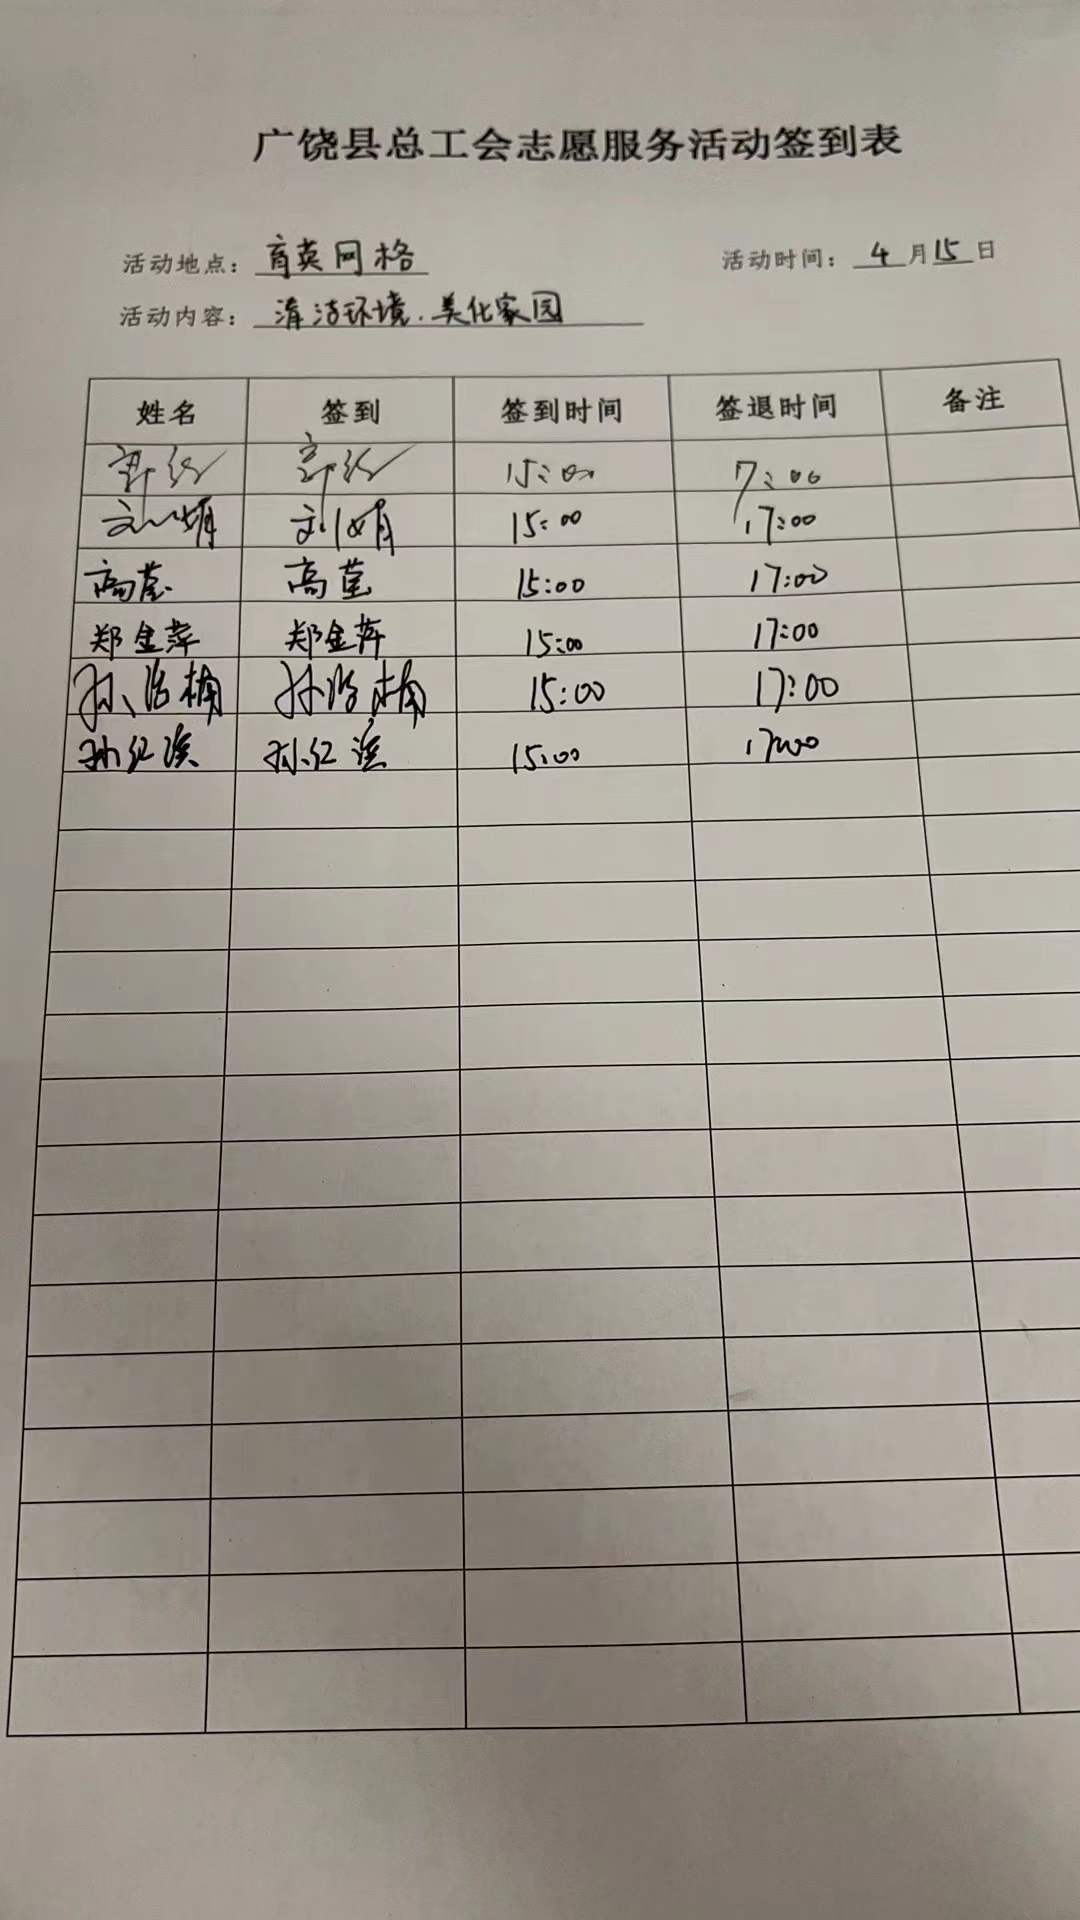 广饶县总工会志愿服务活动签到表
活动地点：育英网格 活动时间：4月15日
活动内容：清洁环境.美化家园
姓名 签到 签到时间 签退时间 备注
15:00 7:00
刘娟 刘娟 15:00 17:00
高莹 高莹 15:00 17:00
郑金萍 郑金萍 15:00 17:00
孙浩楠 孙浩楠 15:00 17:00
孙红 孙红 15:00 17:00